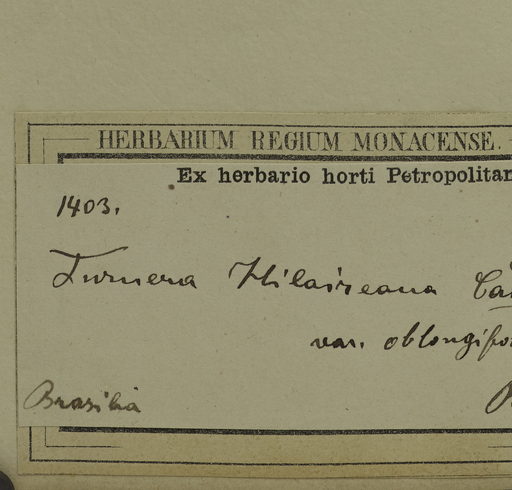 HERBARIUM REGIUM MONACENSE.
Ex herbario horti Petropolitan
1403.
Turnera Hilaireana
var. oblongifo
Brasilia